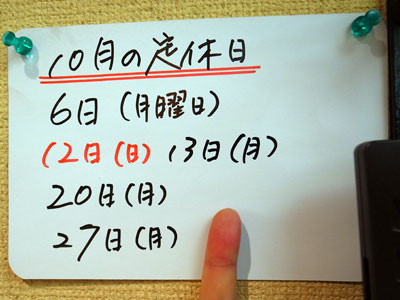 10月の定休日
6日(月曜日)
12日(日) 13日(月)
20日(月)
27日(月)